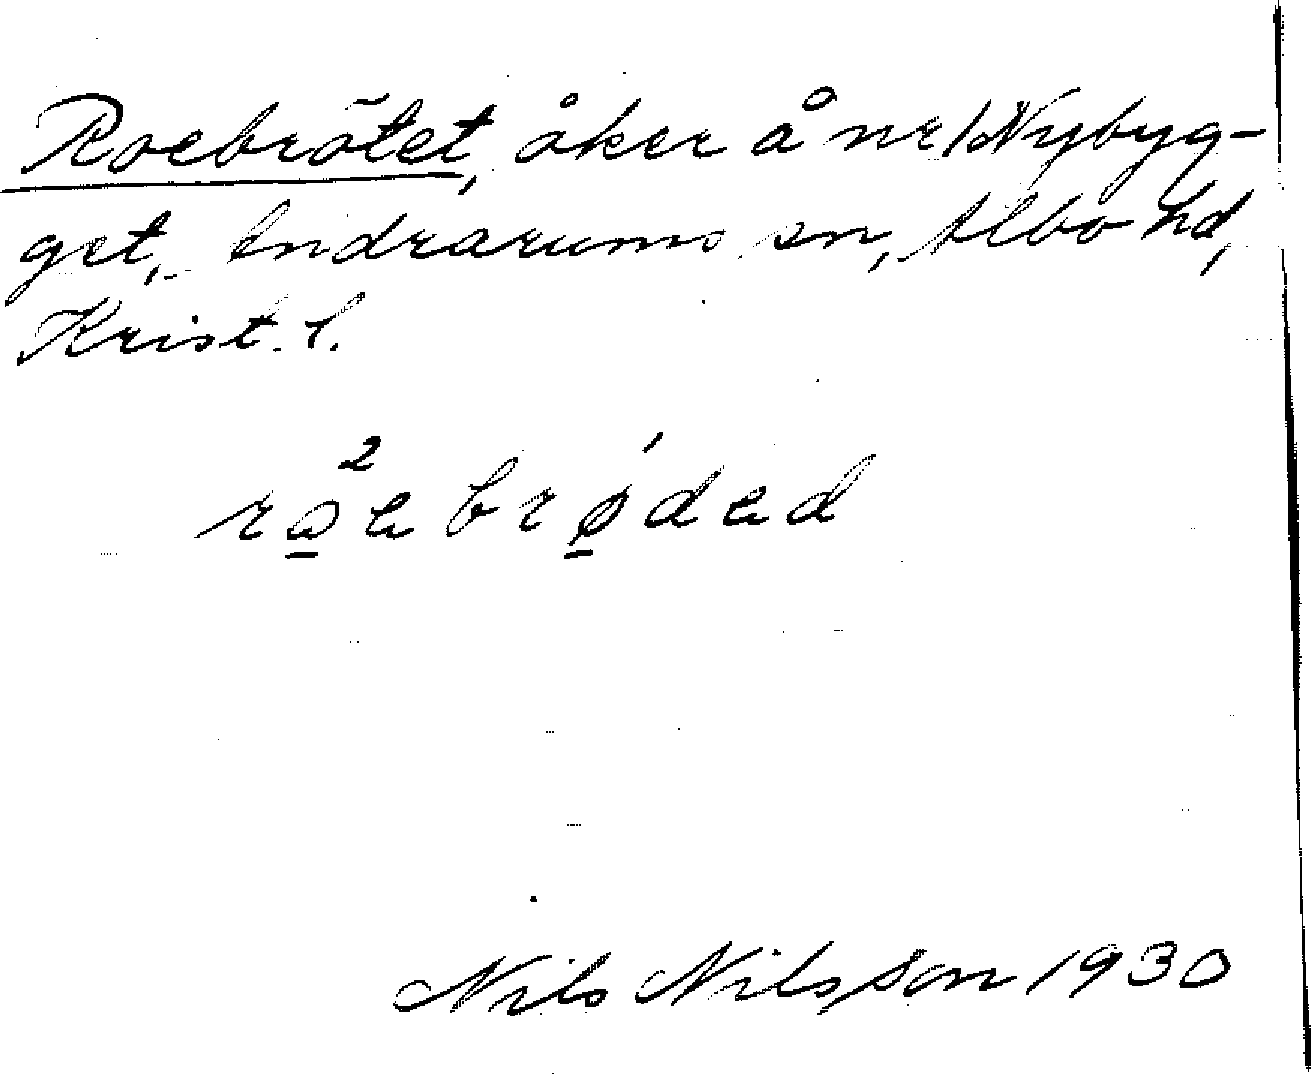 Roebrötet, åker å nr 1 Nybyg-
get, Andrarums sn, Albo hd,
Krist. l.
roebrøded
Nils Nilsson 1930